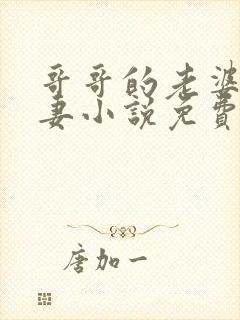 哥哥的老婆
妻小說免費
唐加一